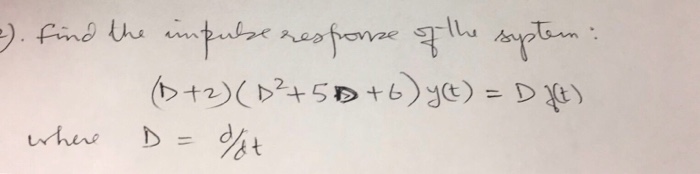 2). find the impulse response of the system :
(D+2)(D²+5D+6) y(t) = D f(t)
where D = d/dt